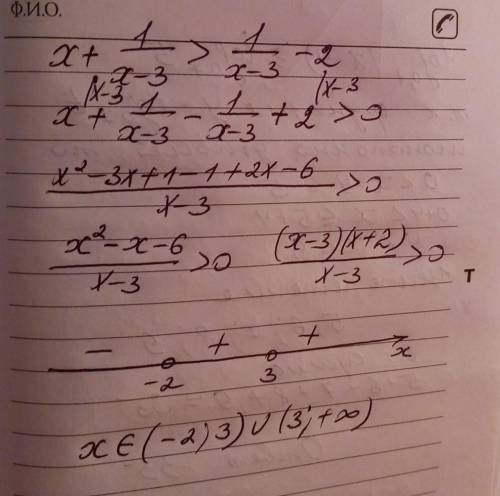 Ф.И.О.
x + 1/(x-3) > 1/(x-3) - 2
x (x-3 + 1/(x-3) - 1/(x-3) + 2 (x-3 > 0
(x² - 3x + 1 - 1 + 2x - 6)/(x-3) > 0
(x² - x - 6)/(x-3) > 0 ((x-3)(x+2))/(x-3) > 0
т
- + +
-2 3 x
x ∈ (-2; 3) ∪ (3; +∞)